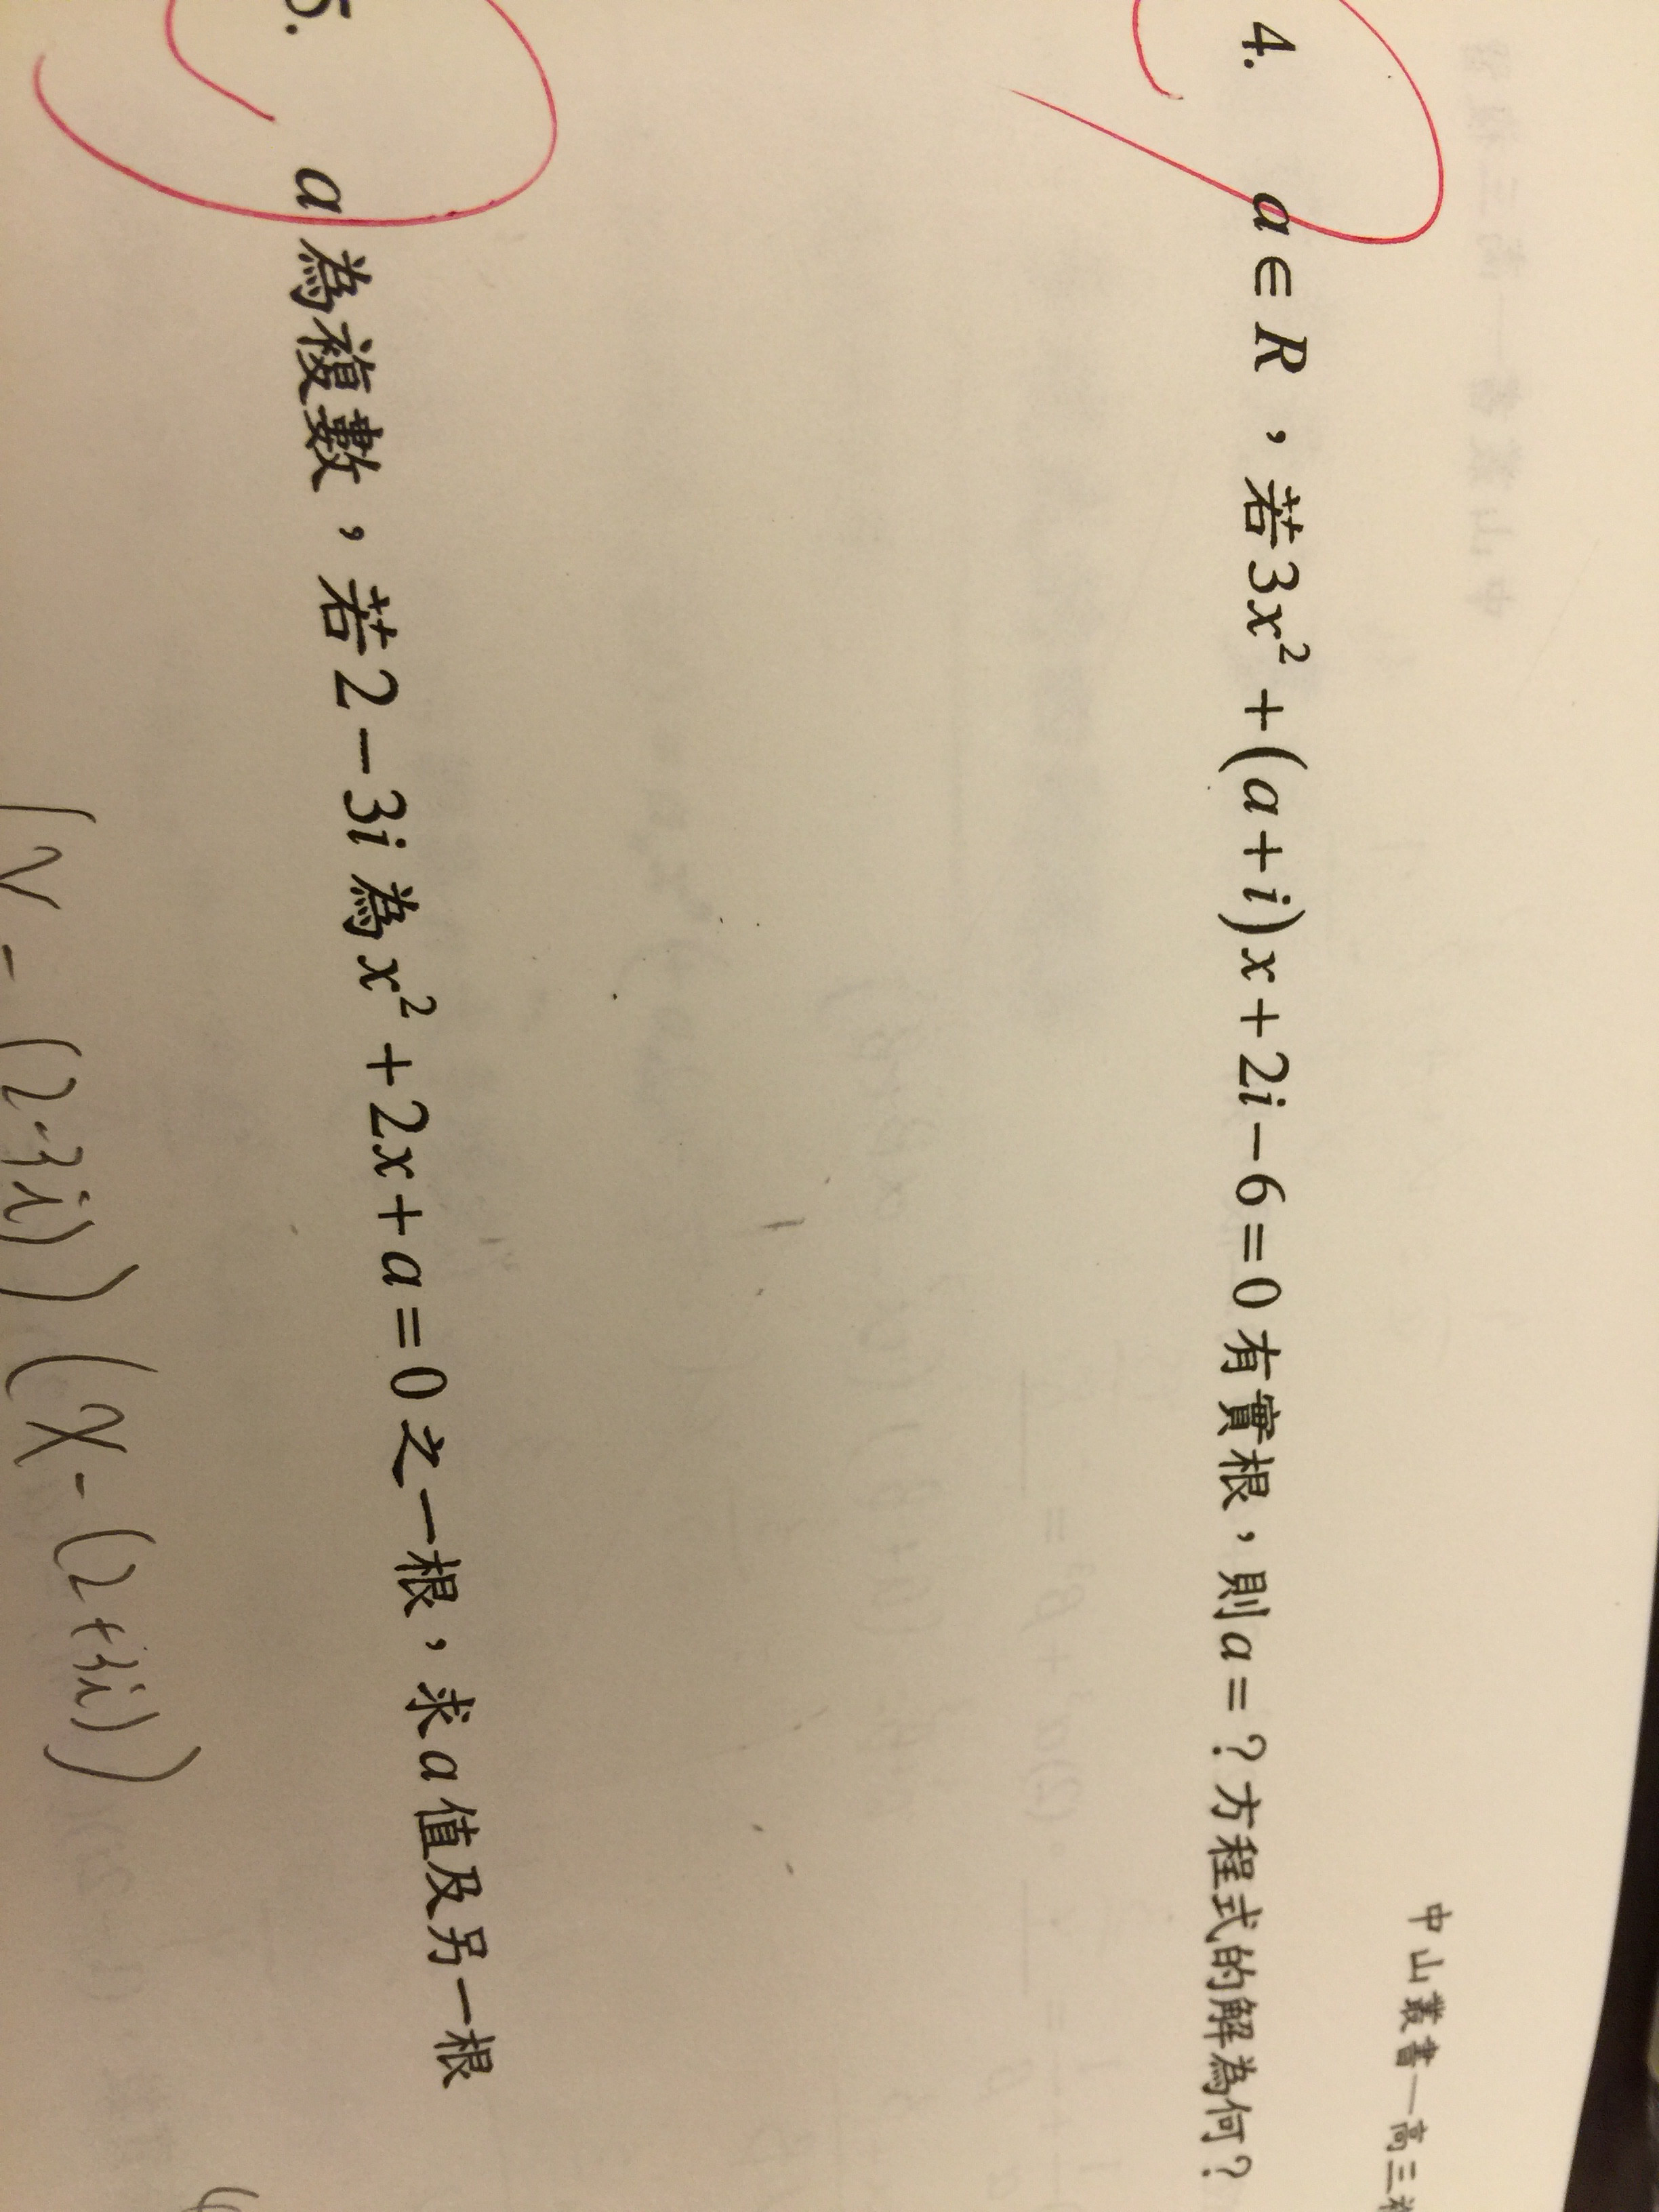 中山叢書一高三
4. a∈R,若3x²+(a+i)x+2i-6=0有實根,則a=?方程式的解為何?
5. a為複數,若2-3i為x²+2x+a=0之一根,求a值及另一根
(x-(2-3i))(x-(2+3i))